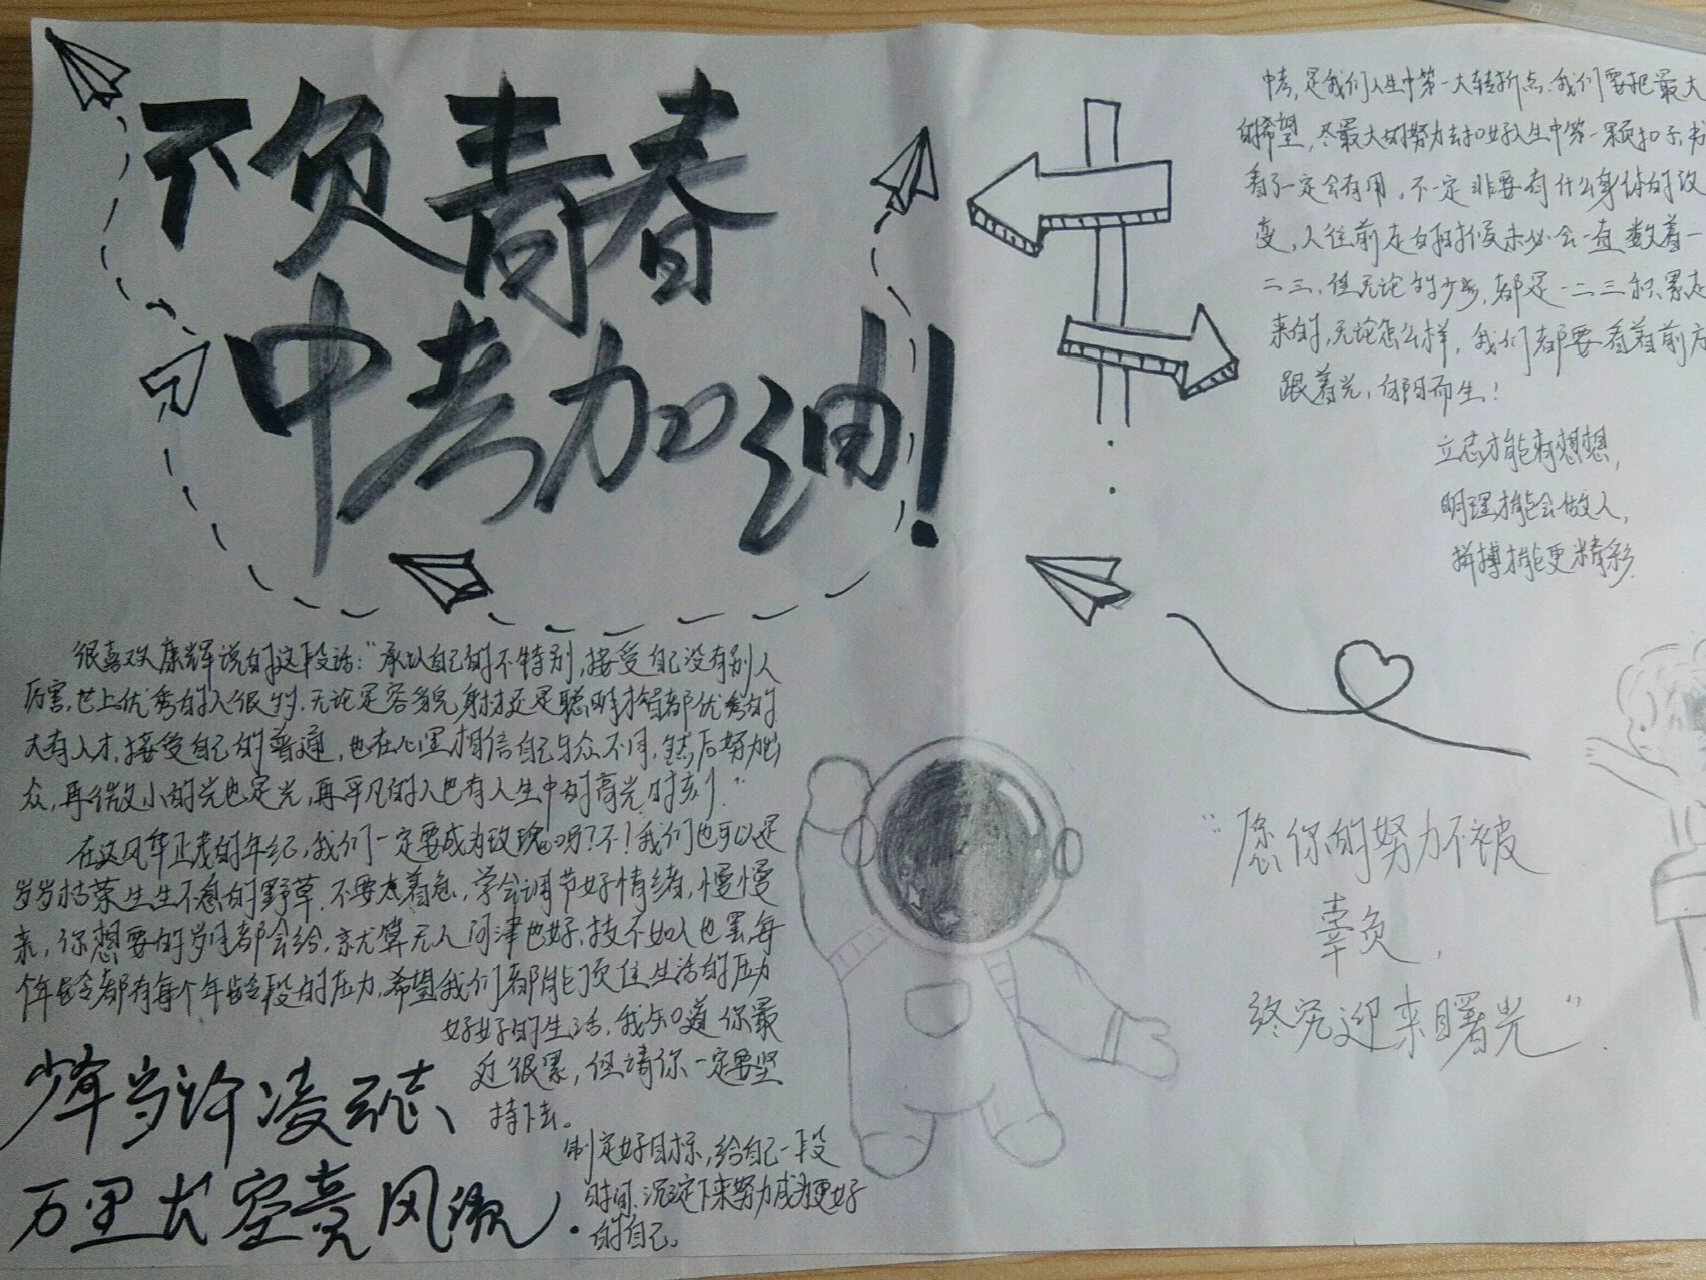 不负青春
中考加油!
很喜欢康辉说的这段话:“承认自己的不特别,接受自己没有别人
厉害,世上优秀的人很多,无论是容貌身材还是聪明才智都优秀的
大有人才,接受自己的普通,也在心里相信自己与众不同,然后努力出
众,再微小的光也是光,再平凡的人也有人生中的高光时刻”
在这风华正茂的年纪,我们一定要成为玫瑰吗?不!我们也可以是
岁岁枯荣生生不息的野草,不要太着急,学会调节好情绪,慢慢
来,你想要的岁月都会给,就算无人问津也好,技不如人也罢,每
个年龄都有每个年龄段的压力,希望我们都能顶住生活的压力
好好的生活,我知道你最
近很累,但请你一定要坚
持下去。
制定好目标,给自己一段
时间,沉淀下来努力成为更好
的自己。
少年当许凌云志、
万里长空竞风流.
中考,是我们人生中第一大转折点.我们要把最大
的希望,尽最大的努力去扣好人生中第一颗扣子,书
看了一定会有用,不一定非要有什么身份的改
变,人往前走的时候未必会一直数着一
二三,但无论的少步,都是一二三积累起
来的,无论怎么样,我们都要看着前方
跟着光,向阳而生!
立志才能有想想,
明理才能会做人,
拼搏才能更精彩.
“愿你的努力不被
辜负,
终究迎来曙光”.